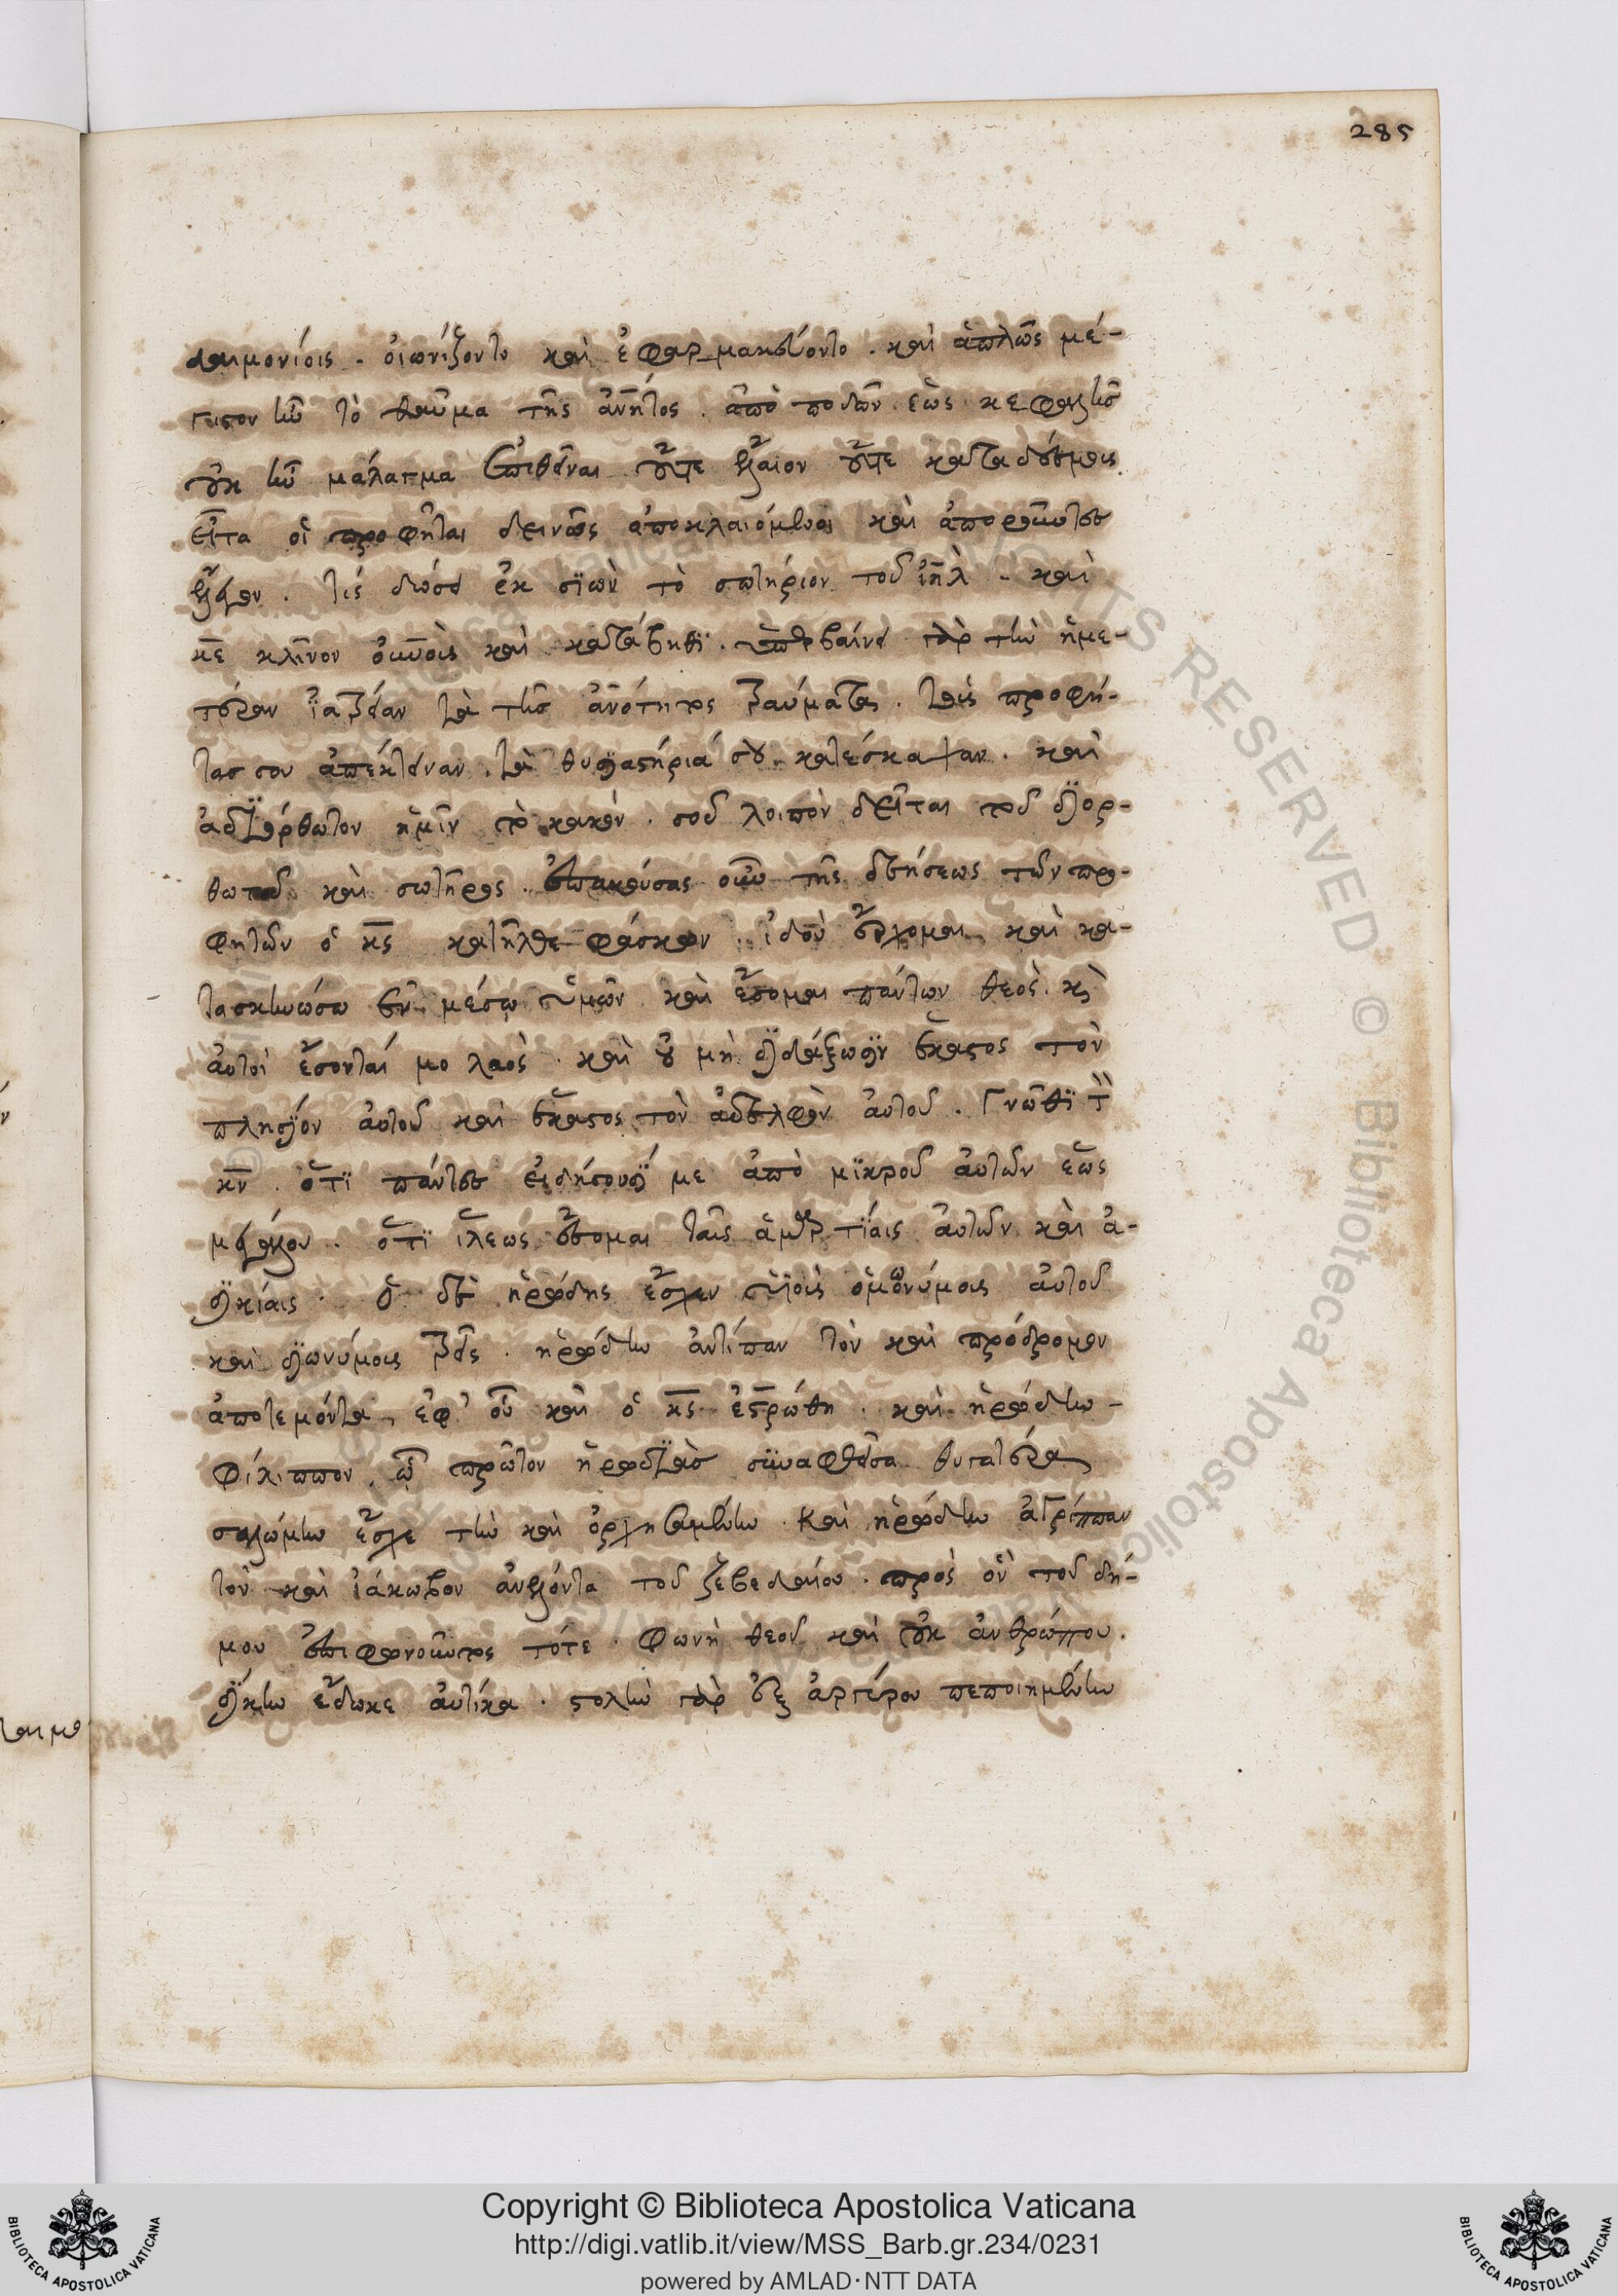 285
δαιμονίοις. οἰωνίζοντο καὶ ἐφαρμακεύοντο. καὶ ἁπλῶς μέ-
γιστον ἦν τὸ τραῦμα τῆς ἀνητος. ἀπὸ ποδῶν ἕως κεφαλῆς
οὐκ ἦν μάλαγμα ἐπιθεῖναι οὔτε ἔλαιον οὔτε καταδέσμους
εἶτα οἱ προφῆται δεινῶς ἀποκλαιόμενοι καὶ ἀποροῦντες
ἔλεγον. τίς δώσει ἐκ σϊὼν τὸ σωτήριον τοῦ ιηλ. καὶ
κε κλῖνον οὐνοὺς καὶ κατάβηθϊ. ὑπερβαίνει γὰρ τὴν ἡμε-
τέραν ϊατρείαν τὰ τῆς ἀνότητος τραύματα. τοὺς προφή-
τας σου ἀπέκτειναν. τὰ θυσϊαστήριά σου κατέσκαψαν. καὶ
ἀδϊόρθωτον ἡμῖν τὸ κακόν. σοῦ λοιπὸν δεῖται τοῦ δϊορ-
θωτοῦ καὶ σωτῆρος. ἐπακούσας οὖν τῆς δεήσεως τῶν προ-
φητῶν ὁ κς κατῆλθε φάσκων. ἰδοὺ ἔρχομαι καὶ κα-
τασκηνώσω ἐν μέσῳ ὑμῶν καὶ ἔσομαι πάντων θεὸς. κὶ
αὐτοὶ ἔσονταί μοι λαὸς. καὶ οὐ μὴ δϊδάξωσϊν ἕκαστος τὸν
πλησϊόν αὐτοῦ καὶ ἕκαστος τὸν ἀδελφὸν αὐτοῦ. Γνῶθϊ τὸν
κν. ὅτϊ πάντες εἰδήσουσϊ με ἀπὸ μϊκροῦ αὐτῶν ἕως
μεγάλου. ὅτϊ ἵλεως ἔσομαι ταῖς ἁμαρτϊαις αὐτῶν καὶ ἀ-
δϊκίαις. ὁ δὲ ἡρώδης ἔσχεν υἱοὺς ὁμωνύμους αὐτοῦ
καὶ δϊωνύμους τρεῖς. ἡρώδην ἀντίπαν τὸν καὶ πρόδρομον
ἀποτεμόντα, ἐφ' οὗ καὶ ὁ κς ἐστρώθη. καὶ ἡρώδην
φίλιππον. ᾧ πρῶτον ἡρωδϊὰς συναφθεῖσα θυγατέρα
σαλώμην ἔσχε τὴν καὶ ὀρχησαμένην. καὶ ἡρώδην ἀγρίππαν
τὸν καὶ ἰάκωβον ἀνελόντα τοῦ ζεβεδαίου. πρὸς ὃν τοῦ δή-
μου ἐπιφωνοῦντος τότε. φωνὴ θεοῦ καὶ οὐκ ἀνθρώπου.
δϊκην ἔδωκε αὐτίκα. στολὴν γὰρ ἐξ ἀργύρου πεποιημένην
Copyright © Biblioteca Apostolica Vaticana
http://digi.vatlib.it/view/MSS_Barb.gr.234/0231
powered by AMLAD·NTT DATA